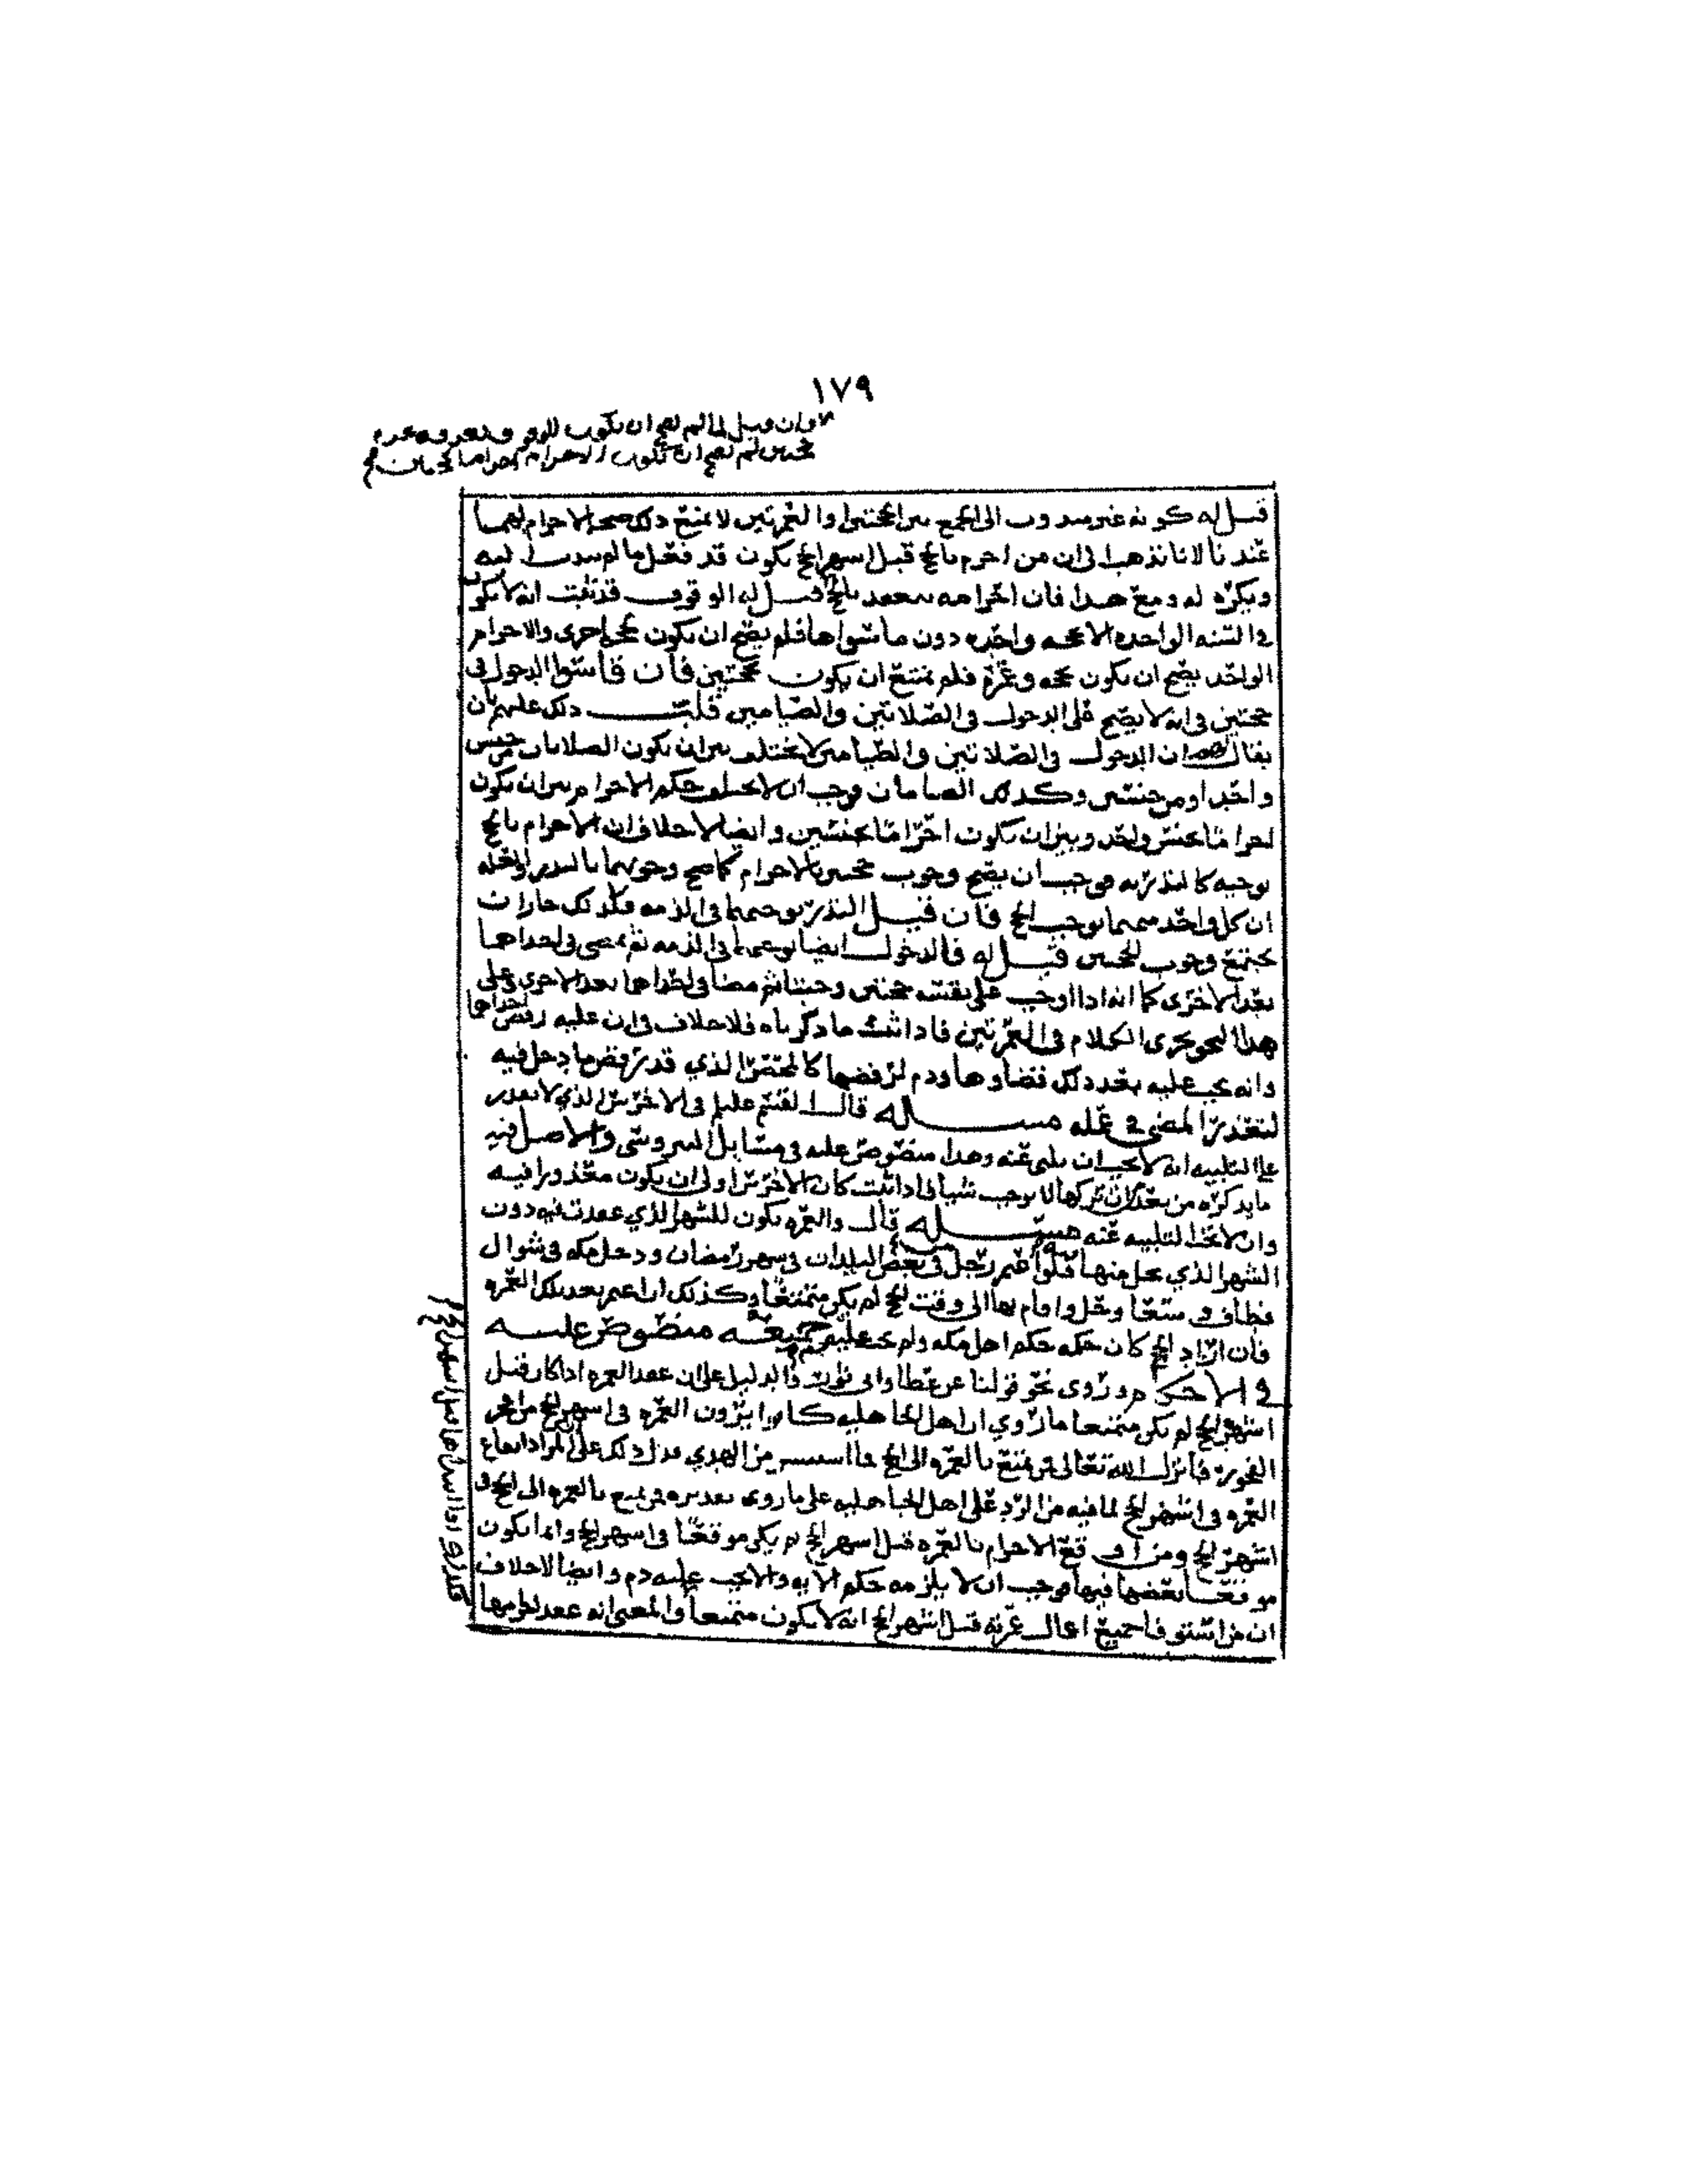 ١٧٩
فان قيل لما لم يصح ان تكون
لم يصح ان تكون الاحرام احراما
قيل له كونه غير مندوب الى الجمع بين الحجتين والعمرتين لا يمنع ذلك صحه الاحرام لهما
عندنا لانا نذهب الى ان من احرم بالحج قبل اسهر الحج يكون قد فعل ما لم يندب اليه
ويكره له ومع هذا فان احرامه ينعقد بالحج قيل له الوقوف قد ثبت انه لا يكون
في السنه الواحده الا لحجه واحده دون ما سواها فلم يصح ان يكون لحجه اخرى والاحرام
الواحد يصح ان يكون لحجه وعمره فلم يمتنع ان يكون لحجتين فان قاسوا الدخول في
حجتين في انه لا يصح على الدخول في الصلاتين والصيامين قلب ذلك عليهم بان
يقال لهم ان الدخول في الصلاتين والصيامين لا يختلف بين ان يكون الصلاتان من جنس
واحد او من جنسين وكذلك الصيامان فوجب ان لا يختلف حكم الاحرام بين ان يكون
احراما بجنس واحد وبين ان يكون احراما بجنسين وايضا لا خلاف ان الاحرام بالحج
يوجبه كالنذر به فوجب ان يصح وجوب حجتين بالاحرام كما صح وجوبهما بالنذر والعله
ان كل واحد منهما يوجب الحج فان قيل النذر يوجبهما في الذمه فلذلك جاز ان
يجتمع وجوب الحجتين قيل له فالدخول ايضا يوجبهما في الذمه ثم يمضي في احداهما
بعد الاخرى كما انه اذا اوجب على نفسه حجتين وجبتا ثم مضا في احداهما بعد الاخرى وعلى
هذا النحو يجرى الكلام في العمرتين فاذا ثبت ما ذكرناه فلا خلاف في ان عليه رفض احداهما
وانه يجب عليه بعد ذلك قضاوها ودم لرفضها كالمحصر الذي قد يرفض ما دخل فيه
لتعذر المضي في عمله مسله قال القسم عليلم في الاخرس الذي لا يقدر
على التلبيه انه لا يجب ان يلبى عنه وهذا منصوص عليه في مسايل النيروسي والاصل فيه
ما يذكره من بعد ان تركها لا يوجب شيا فاذا ثبت كان الاخرس اولى ان يكون معذورا فيه
وان لا تجزا التلبيه عنه مسله قال والعمره تكون للشهر الذي عقدت فيه دون
الشهر الذي يحل منها فلو اعتمر رجل في بعض البلدان في شهر رمضان ودخل مكه في شوال
فطاف وسعا وحل واقام بها الى وقت الحج لم يكن متمتعا وكذلك ان اعتمر بعد تلك العمره
فان اراد الحج كان حكمه حكم اهل مكه ولم يجب عليه جميعه منصوص عليه
في الاحكام وروى نحو قولنا عن عطا وابى ثور والدليل على ان عقد العمره اذا كان قبل
اشهر الحج لم يكن متمتعا ما روي ان اهل الجاهليه كانوا يرون العمره في اشهر الحج من افجر
الفجور فانزل الله تعالى فمن تمتع بالعمره الى الحج فما استيسر من الهدي فدل ذلك على ان المراد ايقاع
العمره في اشهر الحج لما فيه من الرد على اهل الجاهليه على ما روى تقديره فمن تمتع بالعمره الى الحج في
اشهر الحج ومن اوقع الاحرام بالعمره قبل اسهر الحج لم يكن موقعا في اسهر الحج وانما يكون
موقعا بعضها فيها فوجب ان لا يلزمه حكم الايه ولا يجب عليه دم وايضا لا خلاف
ان من استوفا جميع اعمال عمرته قبل اشهر الحج انه لا يكون متمتعا والمعنى انه عقد احرامها